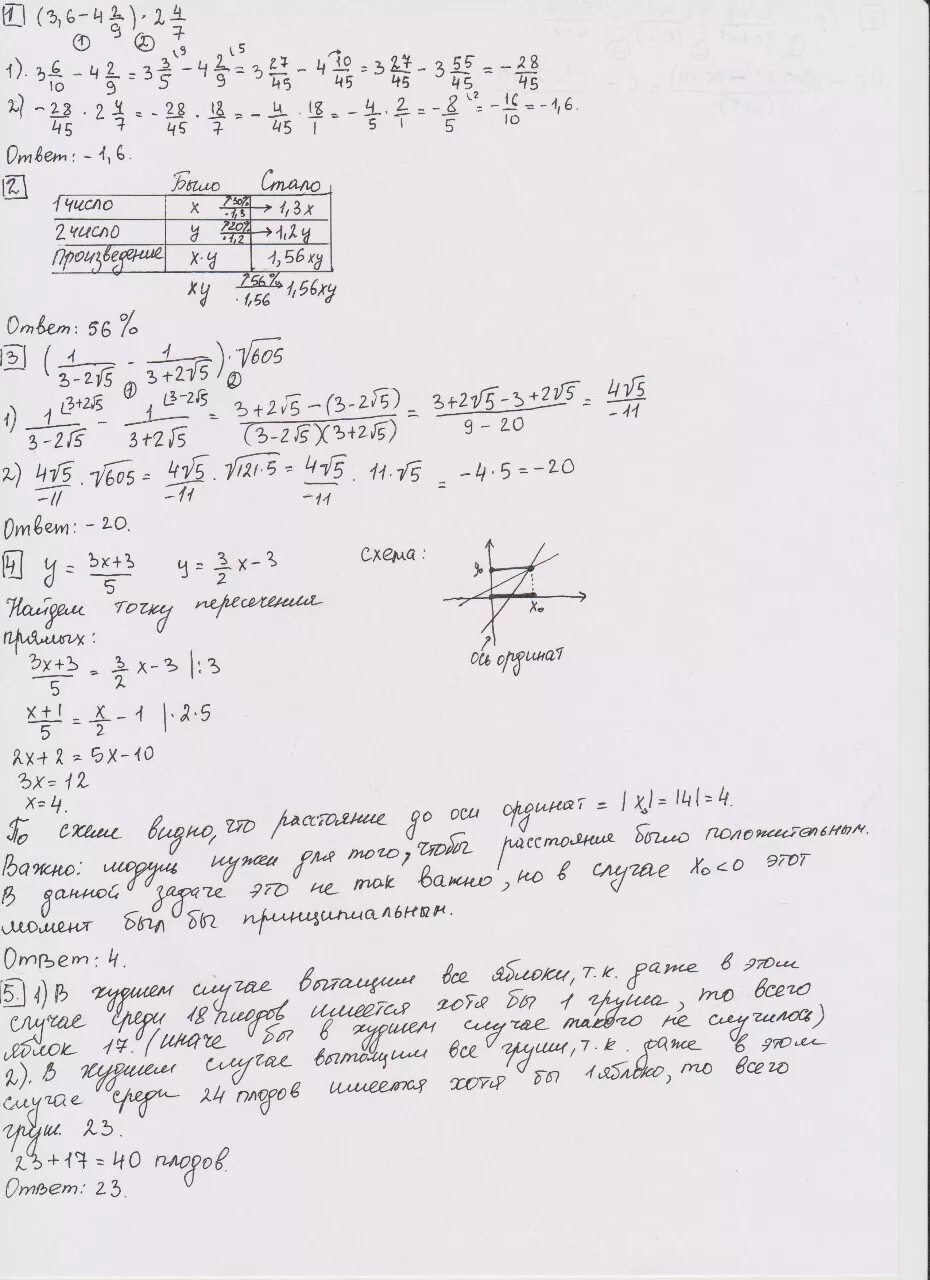 1 (3,6 − 4 2/9) · 2 4/7
① ②
1). 3 6/10 − 4 2/9 = 3 3/5 − 4 2/9 = 3 27/45 − 4 10/45 = 3 27/45 − 3 55/45 = − 28/45
2) − 28/45 · 2 4/7 = − 28/45 · 18/7 = − 4/45 · 18/1 = − 4/5 · 2/1 = − 8/5 = − 16/10 = −1,6.
Ответ: −1,6.
2 Было Стало
1 число x ↑30% ·1,3 → 1,3x
2 число y ↑20% ·1,2 → 1,2y
Произведение x·y 1,56xy
xy ↑56% ·1,56 → 1,56xy
Ответ: 56%
3 (1/(3−2√5) − 1/(3+2√5)) · √605
① ②
1) 1/(3−2√5) (3+2√5 − 1/(3+2√5) (3−2√5 = (3+2√5−(3−2√5))/((3−2√5)(3+2√5)) = (3+2√5−3+2√5)/(9−20) = 4√5/−11
2) 4√5/−11 · √605 = 4√5/−11 · √121·5 = 4√5/−11 · 11·√5 = −4·5 = −20
Ответ: −20.
4 y = (3x+3)/5 y = 3/2 x − 3 схема:
y₀
x₀
ось ординат
Найдем точку пересечения
прямых:
(3x+3)/5 = 3/2 x − 3 |:3
(x+1)/5 = x/2 − 1 |·2·5
2x+2 = 5x−10
3x = 12
x = 4.
По схеме видно, что расстояние до оси ординат = |x₀| = |4| = 4.
Важно: модуль нужен для того, чтобы расстояние было положительным.
В данной задаче это не так важно, но в случае x₀<0 этот
момент был бы принципиальным.
Ответ: 4.
5. 1) В худшем случае вытащим все яблоки, т.к. даже в этом
случае среди 18 плодов имеется хотя бы 1 груша, то всего
яблок 17. (иначе бы в худшем случае такого не случилось)
2). В худшем случае вытащим все груши, т.к. даже в этом
случае среди 24 плодов имеется хотя бы 1 яблоко, то всего
груш 23.
23+17=40 плодов.
Ответ: 23.